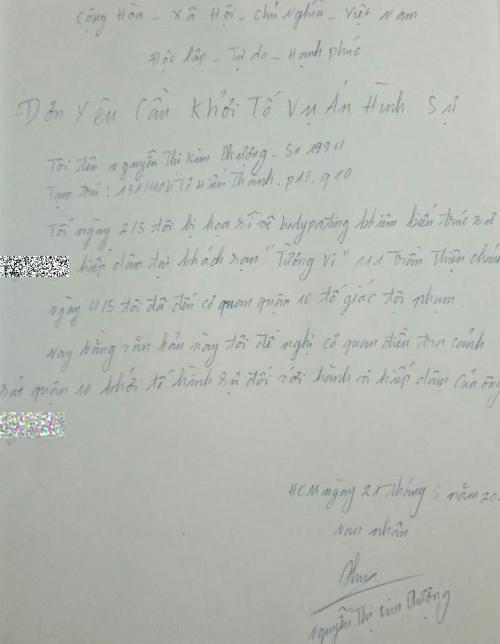 Cộng Hòa - Xã Hội - Chủ Nghĩa - Việt Nam
Độc lập - Tự do - Hạnh phúc
Đơn Yêu Cầu Khởi Tố Vụ Án Hình Sự
Tôi tên Nguyễn Thị Kim Phượng - Sn 1994
Tạm trú: Tô Hiến Thành. p13. q10
Tối ngày 2/5 tôi bị họa sĩ vẽ bodypating kiêm kiến trúc sư
hiếp dâm tại khách sạn "Tường Vi" 111 Trần Thiện chánh
ngày 4/5 tôi đã đến cơ quan quận 10 tố giác tội phạm.
nay bằng văn bản này tôi đề nghị cơ quan điều tra cảnh
sát quận 10 khởi tố hình sự đối với hành vi hiếp dâm của ông
HCM ngày 25 tháng 5 năm 20
nạn nhân
Nguyễn Thị Kim Phượng